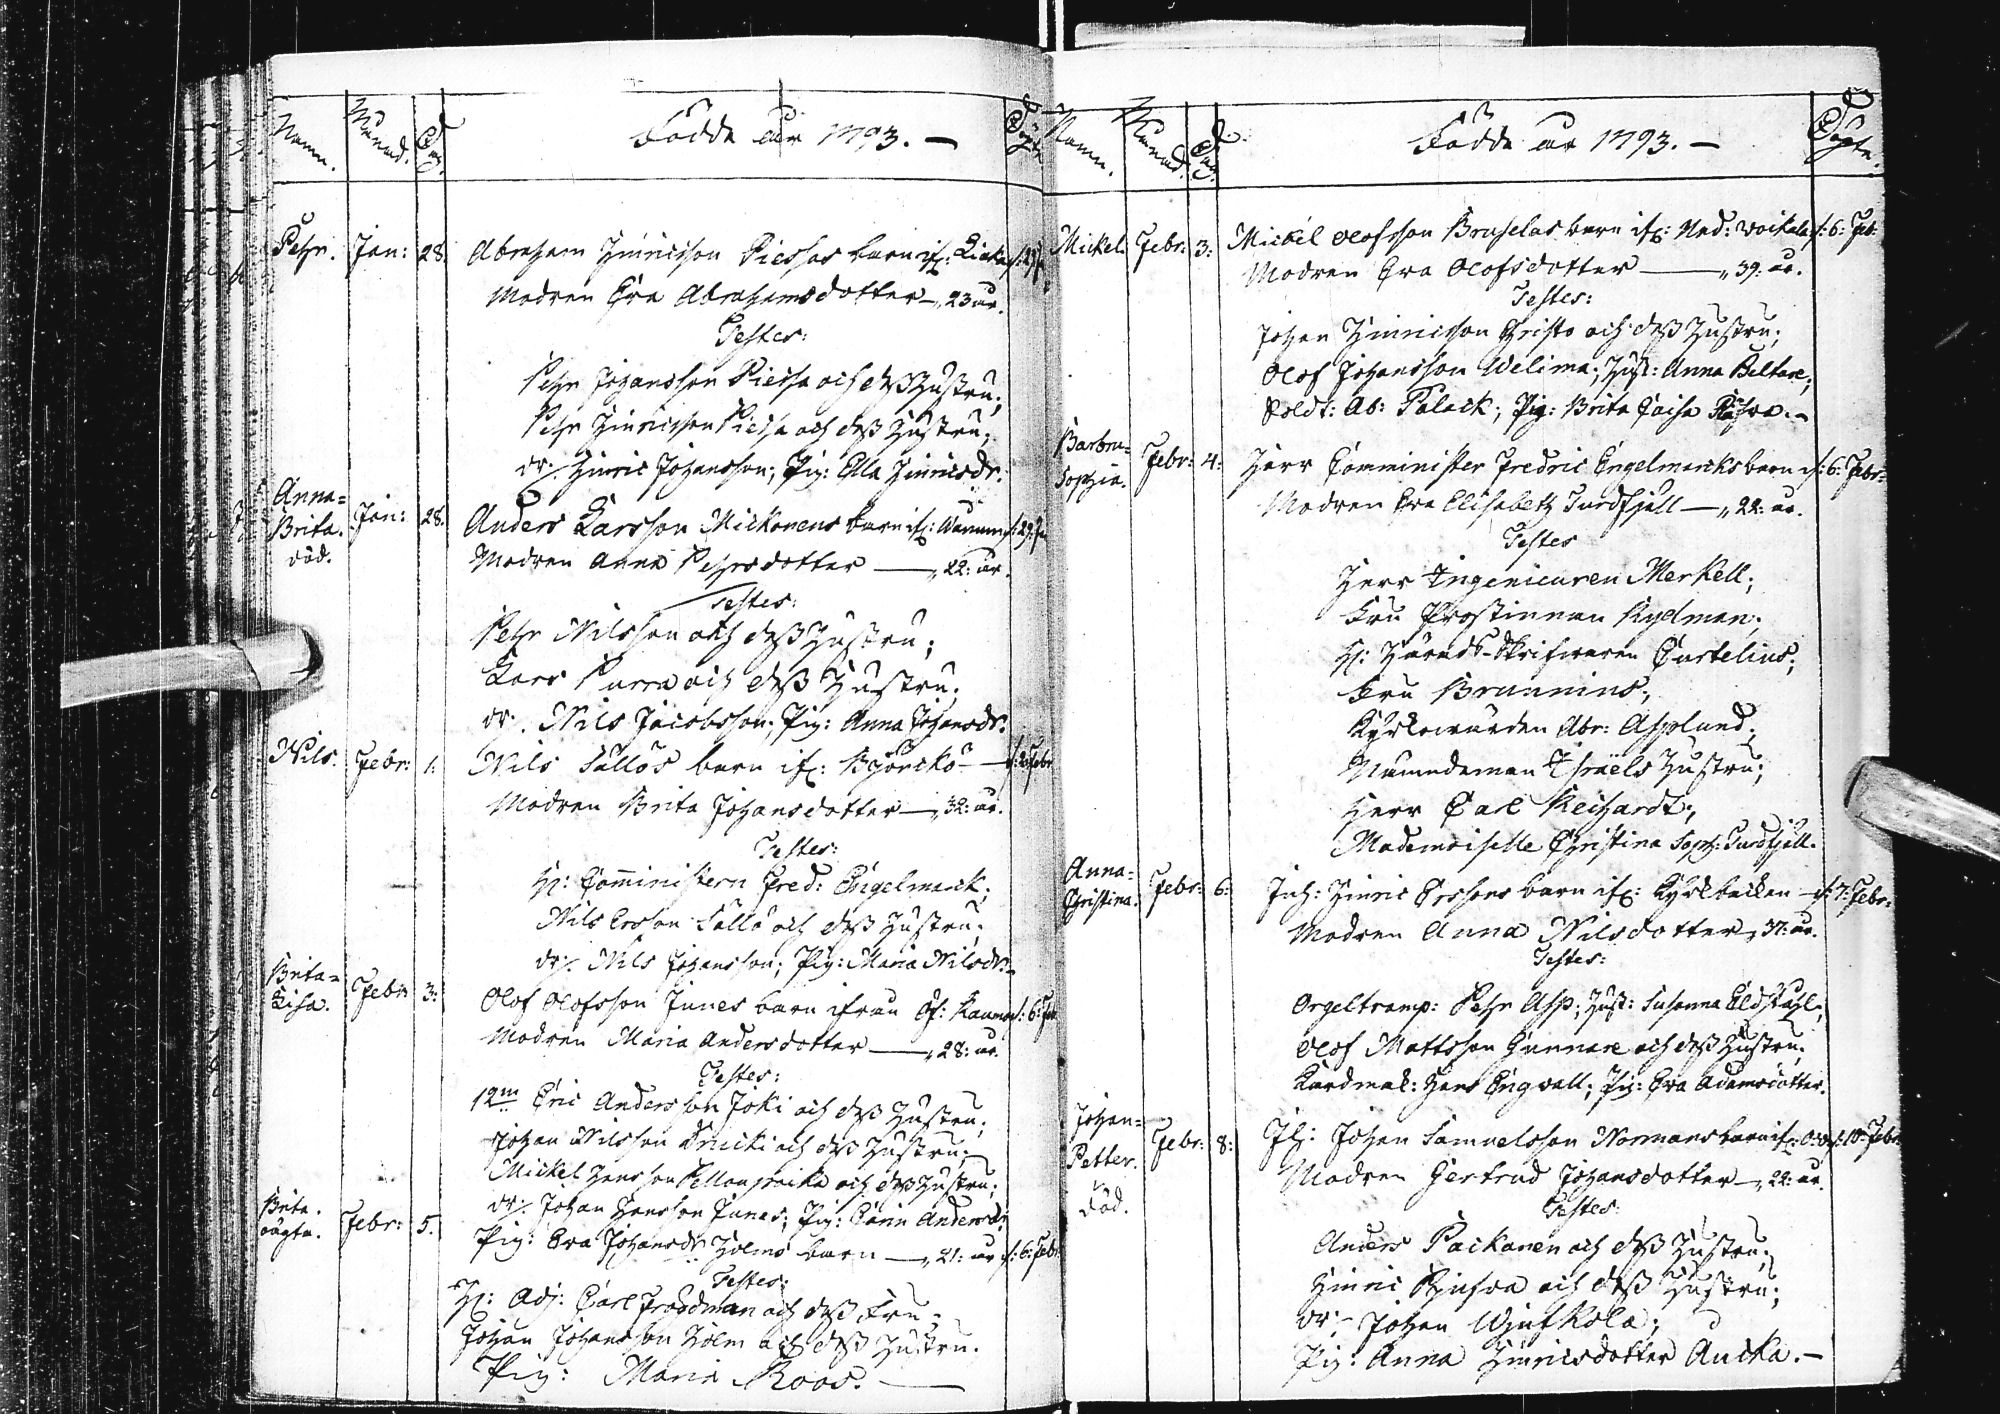 Namn. Månad. Dag. Födde år 1793. — Döpte.
Pehr. Jan: 28. Abraham Hinricsson Piessas barn ifr: Kieka d: 29 J.
Modren Eva Abrahamsdotter —„ 23 år.
Testes:
Pehr Johansson Piessa och dess Hustru;
Pehr Hinricsson Piessa och dess Hustru;
dr: Hinric Johansson; Pig: Ella Hinricsdr.
Anna= Brita. död. Jan: 28. Anders Larsson Mickonens barn ifr: d: 29: J
Modren Anna Pehrsdotter —„ 22: år.
Testes:
Pehr Nilsson och dess Hustru;
Lars Purra och dess Hustru;
dr: Nils Jacobsson; Pig: Anna Johansdr:
Nils. Febr: 1: Nils Sällös barn ifr: Björckö — d: 2 Febr
Modren Brita Johansdotter —„ 32: år.
Testes:
Hr: Comministern Fred: Engelmarck;
Nils Ersson Sällö och dess Hustru;
dr: Nils Johansson; Pig: Maria Nilsdr: —
Brita= Lisa. Febr: 3: Olof Olofsson Junes barn ifrån d: 6: Feb
Modren Maria Andersdotter —„ 28: år.
Testes:
Eric Andersson Joki och dess Hustru;
Johan Nilsson och dess Hustru;
Mickel Hansson och dess Hustru;
dr: Johan Hansson Junes; Pig: Carin Andersdr;
Brita. oägta. Febr: 5. Pig: Eva Johansdr Holms barn —„ 21: år d: 6: Febr
Testes:
Hr: Adj: Carl Frosdman och dess Fru;
Johan Johansson Holm och dess Hustru.
Pig: Maria Roos. —
Namn. Månad. Dag. Födde år 1793. — Döpte.
Mickel. Febr: 3: Mickel Olofsson barn ifr: Ned: d: 6: Feb:
Modren Eva Olofsdotter —„ 39: år.
Testes:
Johan Hinricsson Christo och dess Hustru;
Olof Johansson Welima; Hust: Anna Beltare;
Soldt: Ab: Palack; Pig: Brita Caisa
Barbra= Sophia. Febr: 4: Herr Comminister Fredric Engelmarcks barn d: 6: Febr:
Modren Eva Elisabeth Turdfjäll —„ 22: år.
Testes
Herr Ingenieuren Merkell;
Fru Prostinnan Rydman;
Hr: Härads-Skrifvaren Curtelius;
Fru Brunnius;
Kyrkowärden Abr: Asplund;
Nämndeman Israels Hustru;
Herr Carl Reichardt;
Mademoiselle Christina Soph: Turdfjäll.
Anna= Christina. Febr: 6: Inh: Hinric Erssons barn ifr: Kyrkbacken — d: 7: Febr:
Modren Anna Nilsdotter „ 37: år.
Testes:
Orgeltramp: Pehr Asp; Hust: Susanna Eldståhl;
Olof Mattsson Gunnare och dess Hustru;
Kardmak: Hans Engwall; Pig: Eva Adamsdotter.
Johan= Petter. död. Febr: 8: Johan Samuelsson Normans barn ifr: d: 10: Febr:
Modren Gertrud Johansdotter —„ 22: år.
Testes:
Anders Packanen och dess Hustru;
Hinric och dess Hustru;
dr: Johan Wjufkola;
Pig: Anna Hinricsdotter Aucka. —